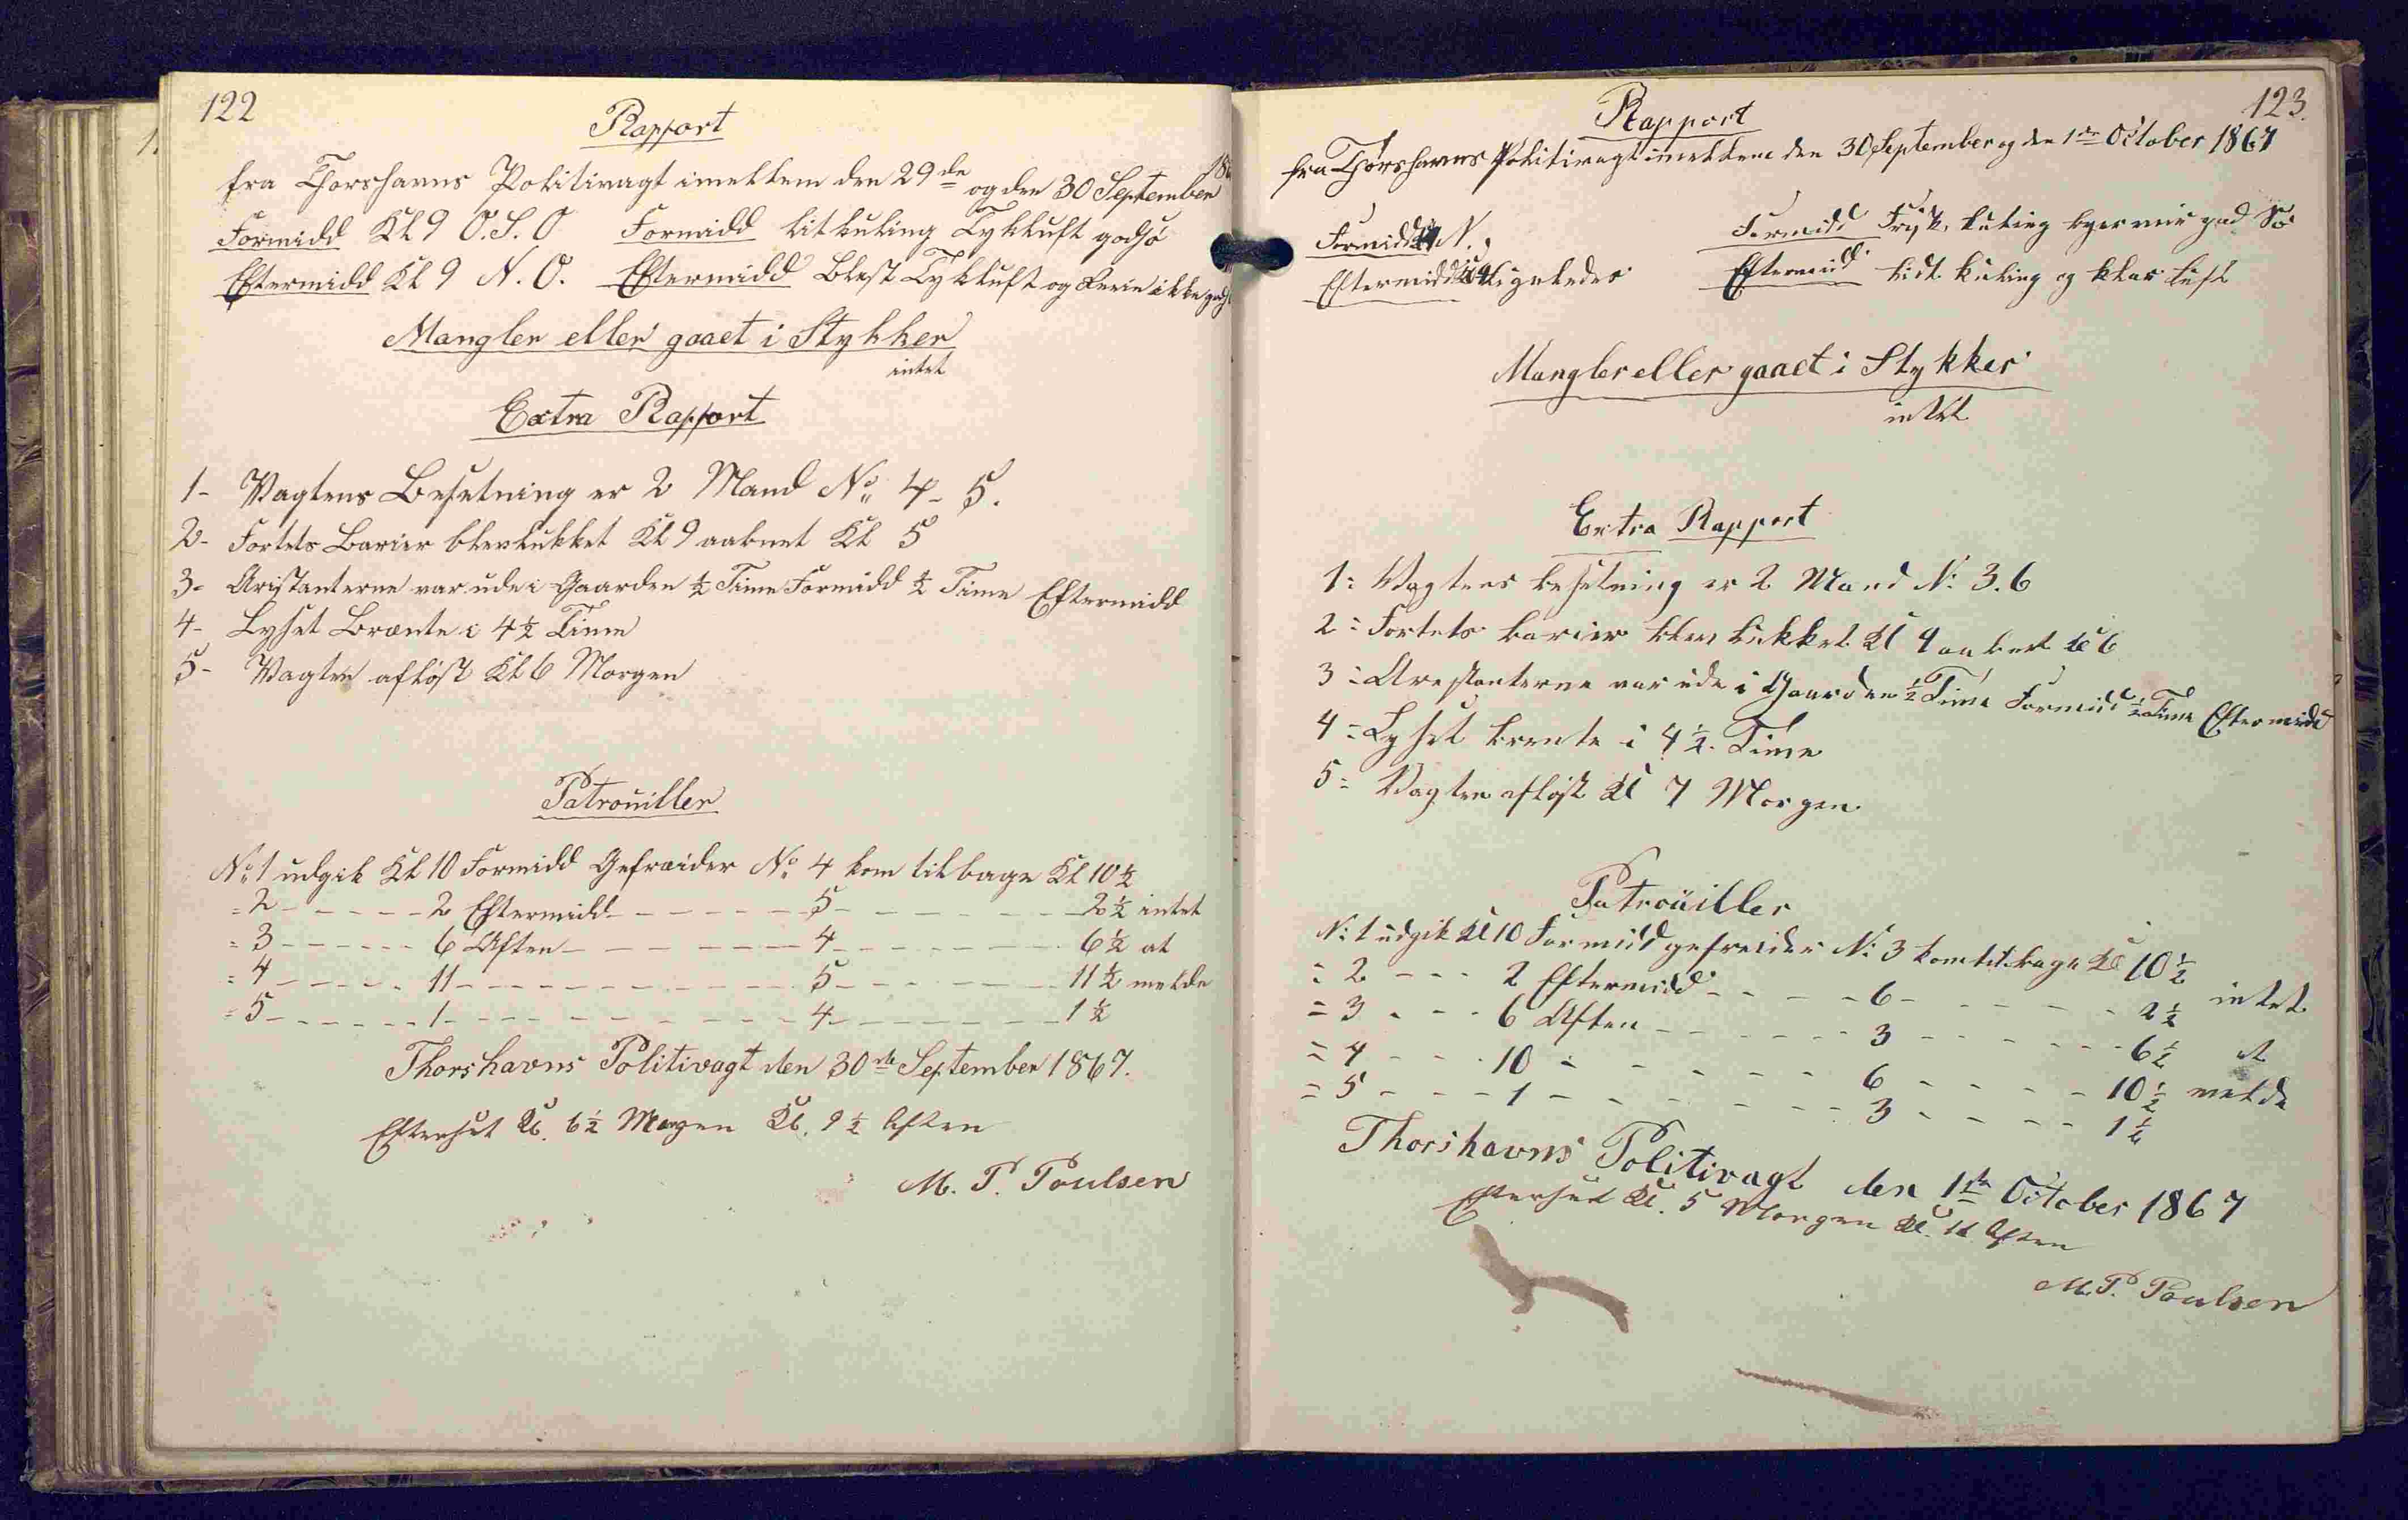 122
Rapport
fra Thorshavns Politivagt imellem den 29de og den 30 September 186
Formidd Kl 9 O.S.O Formidd litkuling Tykluft godsø
Eftermidd Kl 9 N.O. Eftermidd Blest Tykluft og Rein ikke gods
Mangler eller gaaet i Stykker
intet
Extra Rapport
1- Vagtens Besetning er 2 Mand No 4 - 5.
2- Fortets Barier blev lukket Kl 9 aabnet Kl 5
3- Aristanterne var ude i Gaarden ½ Time Formidd ½ Time Eftermidd
4- Lyset Brænte i 4½ Time
5- Vagten afløst Kl 6 Morgen
Patrouiller
No 1 udgik Kl 10 Formidd Gefraider No 4 kom tilbage Kl 10½
= 2 - - - - - 2 Eftermidd - - - - - - 5 - - - - - - - 2½ intet
= 3 - - - - - - 6 Aften - - - - - - - 4 - - - - - - - 6½ at
= 4 - - - - - 11 - - - - - - - - - - 5 - - - - - - - 11½ melde
= 5 - - - - - - 1 - - - - - - - - - - 4 - - - - - - - 1½
Thorshavns Politivagt den 30te September 1867.
Efterset Kl. 6½ Morgen Kl. 9½ Aften
M. P. Poulsen
123.
Rapport
fra Thorshavns Politivagt imellem den 30 September og den 1ste October 1867
Formidd N. Formidd Frisk kuling byer mir god Sø
Eftermidd Ligeledes Eftermidd lidt kuling og klar luft
Mangler eller gaaet i Stykker
intet
Extra Rapport
1= Vagtens besetning er 2 Mand N: 3.6
2= Fortets barier blev lukket Kl 9 aabnet Kl 6
3= Arestanterne var ude i Gaarden ½ Time Formidd ½ Time Eftermidd
4= Lyset brente i 4½ Time
5= Vagten afløst Kl 7 Morgen
Patrouiller
N: 1 udgik Kl 10 Formidd gefreider N: 3 kom tilbage Kl 10½
= 2 - - - 2 Eftermidd - - - - - 6 - - - - - - 2½ intet
= 3 - - - 6 Aften - - - - - - 3 - - - - - - 6½ at
= 4 - - - 10 - - - - - - 6 - - - - - 10½ melde
= 5 - - - 1 - - - - - - - 3 - - - - - 1½
Thorshavns Politivagt den 1ste October 1867
Efterset Kl. 5 Morgen Kl. 11 Aften
M. P. Poulsen